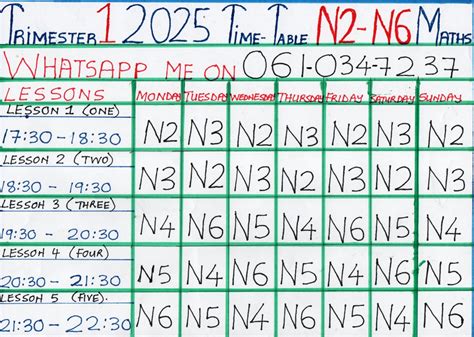 TRIMESTER 1 2025 TIME-TABLE N2-N6 MATHS
WHATSAPP ME ON 061-034-7237
LESSONS MONDAY TUESDAY WEDNESDAY THURSDAY FRIDAY SATURDAY SUNDAY
LESSON 1 (ONE)
17:30-18:30 N2 N3 N2 N3 N2 N3 N2
LESSON 2 (TWO)
18:30-19:30 N3 N2 N3 N2 N3 N2 N3
LESSON 3 (THREE)
19:30-20:30 N4 N6 N5 N4 N6 N5 N4
LESSON 4 (FOUR)
20:30-21:30 N5 N4 N6 N5 N4 N6 N5
LESSON 5 (FIVE)
21:30-22:30 N6 N5 N4 N6 N5 N4 N6